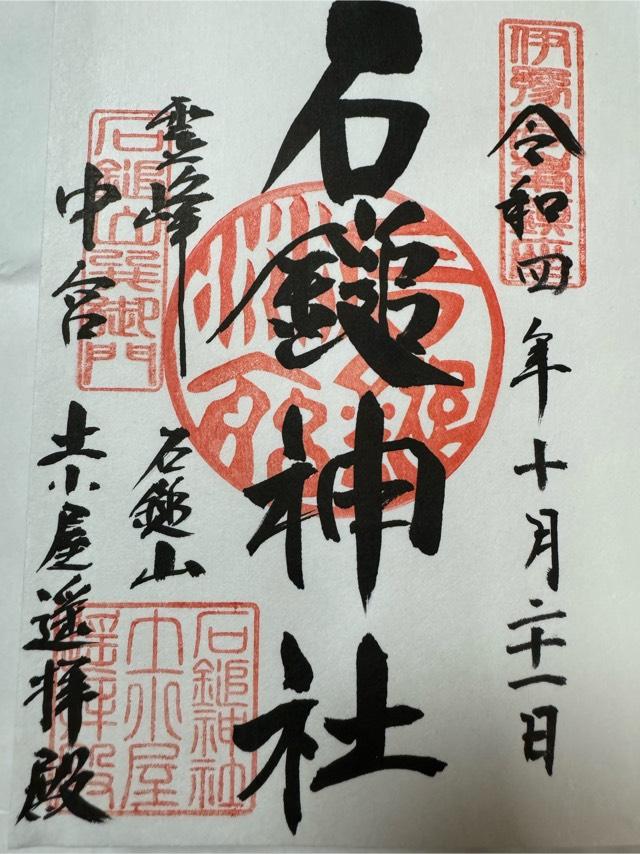 伊豫
令和四年十月二十一日
石鎚神社
霊峰
石鎚山
中宮
土小屋遥拝殿
石鎚山巽御門
石鎚神社
土小屋
遙拝殿